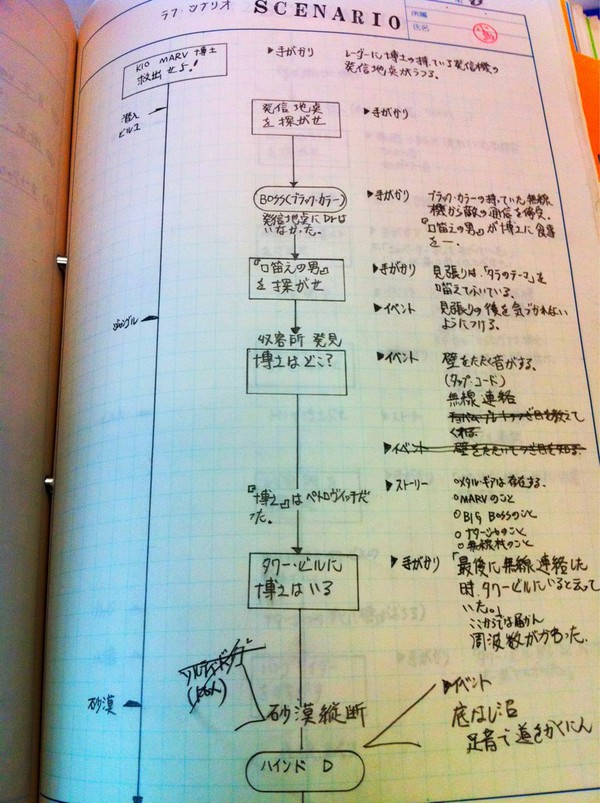 ラフ・シナリオ
SCENARIO
所属
氏名
KIO MARV 博士
救出せよ!
▶手がかり
レーダーに博士の持っている発信機の
発信地点がうつる。
潜入
ビル1
発信地点
を探がせ
▶手がかり
BOSS(ブラック・カラー)
発信地点にDrは
いなかった。
▶手がかり
ブラック・カラーの持っていた無線
機から敵の通信を傍受。
『口笛えの男』が博士に食事
を一。
『口笛えの男』
を探がせ
▶手がかり
見張りは、「タラのテーマ」を
口笛えでふいている。
ジャングル
▶イベント
見張りの後を気づかれない
ようにつける。
収容所 発見
博士はどこ?
▶イベント
壁をたたく音がする。
(タップ・コード)
無線連絡
くれる
▶イベント
壁をたたいてつぎ目を知る。
『博士』はペトロヴィッチだ
った。
▶ストーリー
○メタル・ギアは存在する。
○MARVのこと
○BIG BOSSのこと
○ナターシャのこと
○無線機のこと
タワー・ビルに
博士はいる
▶手がかり
「最後に無線連絡した
時、タワービルにいると云って
いた。」
ここからでは届かん
周波数がかわった。
砂漠
砂漠縦断
▶イベント
底なし沼
足音で道をかくにん
ハインド D